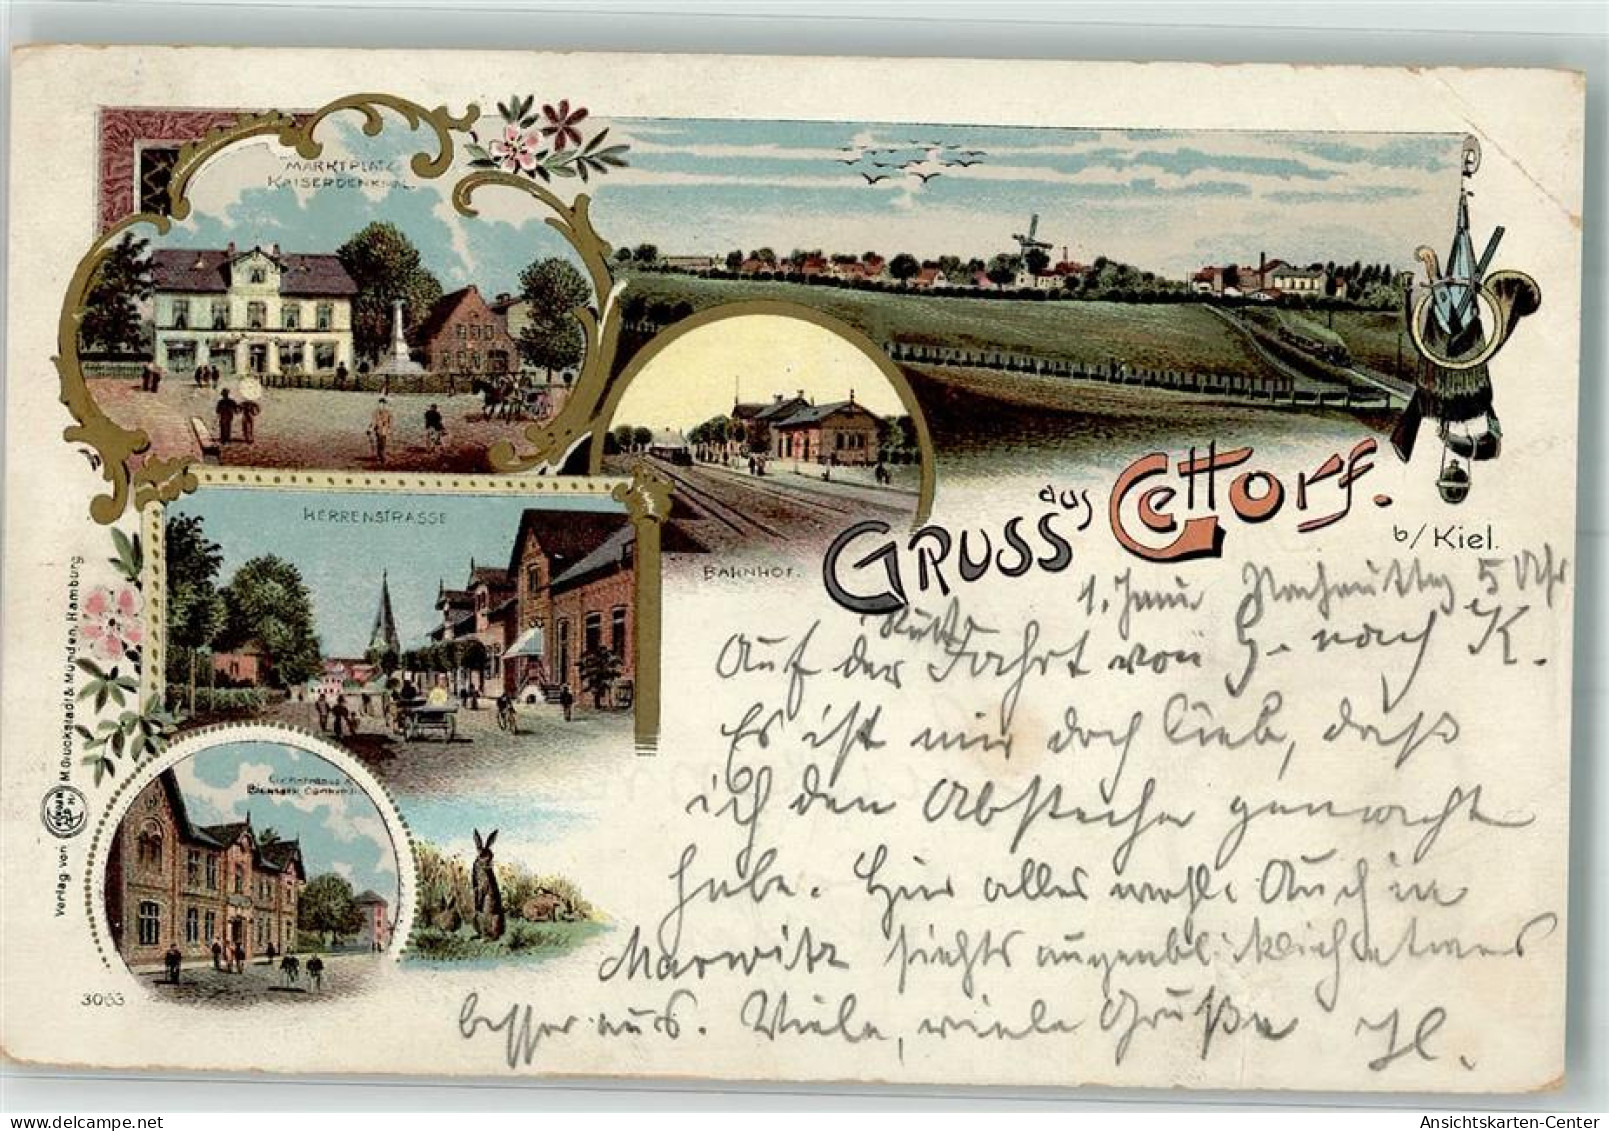 MARKTPLATZ
KAISERDENKMAL.
HERRENSTRASSE
BAHNHOF.
GRUSS aus Gettorf.
b/Kiel.
1. Juni Nachmittag 5 Uhr
Auf der Fahrt von G. nach K.
Es ist mir doch lieb, daß
ich den Abstecher gemacht
habe. Hier alles wohl. Auch in
Marwitz siehts augenblicklich etwas
besser aus. Viele, viele Grüße
Verlag von M. Glückstadt & Münden, Hamburg
3063
Ansichtskarten-Center